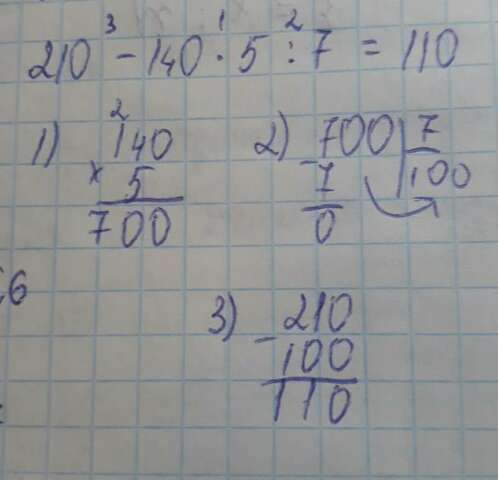 3 1 2
210 - 140 · 5 : 7 = 110
1) 2
140
× 5
700
2) 700 7
- 7 100
0
6
3) 210
- 100
110